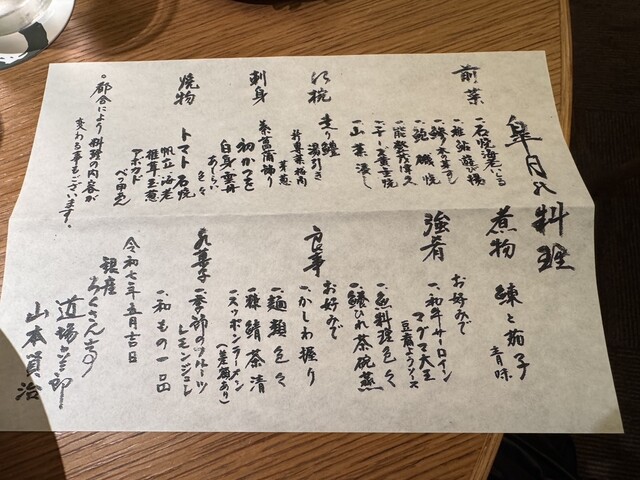 皐月の料理
前菜
一、石焼海老いろ
一、稚鮎遊び揚
一、鮑磯焼
一、能登
一、チーズ黄金焼
一、山菜浸し
椀
走り鱧
湯引き
芽葱
刺身
茶菖蒲飾り
初かつを
白身 雲丹
あしらい 色々
焼物
トマト石焼
帆立 海老
椎茸 玉葱
アボカド
ベっ甲あん
。都合により料理の内容が
変わる事もございます。
煮物
鰊と茄子
青味
強肴
お好みで
一、和牛サーロイン
マグマ大王
豆腐ようソース
一、魚料理色々
一、鱶ひれ茶碗蒸
食事
お好みで
一、かしわ握り
一、麺類色々
一、糠鯖茶漬
一、スッポンラーメン
(差額あり)
水菓子
一、季節のフルーツ
レモンジュレ
一、和もの一品
令和七年五月吉日
銀座
ろくさん亭
道場六三郎
山本賢治